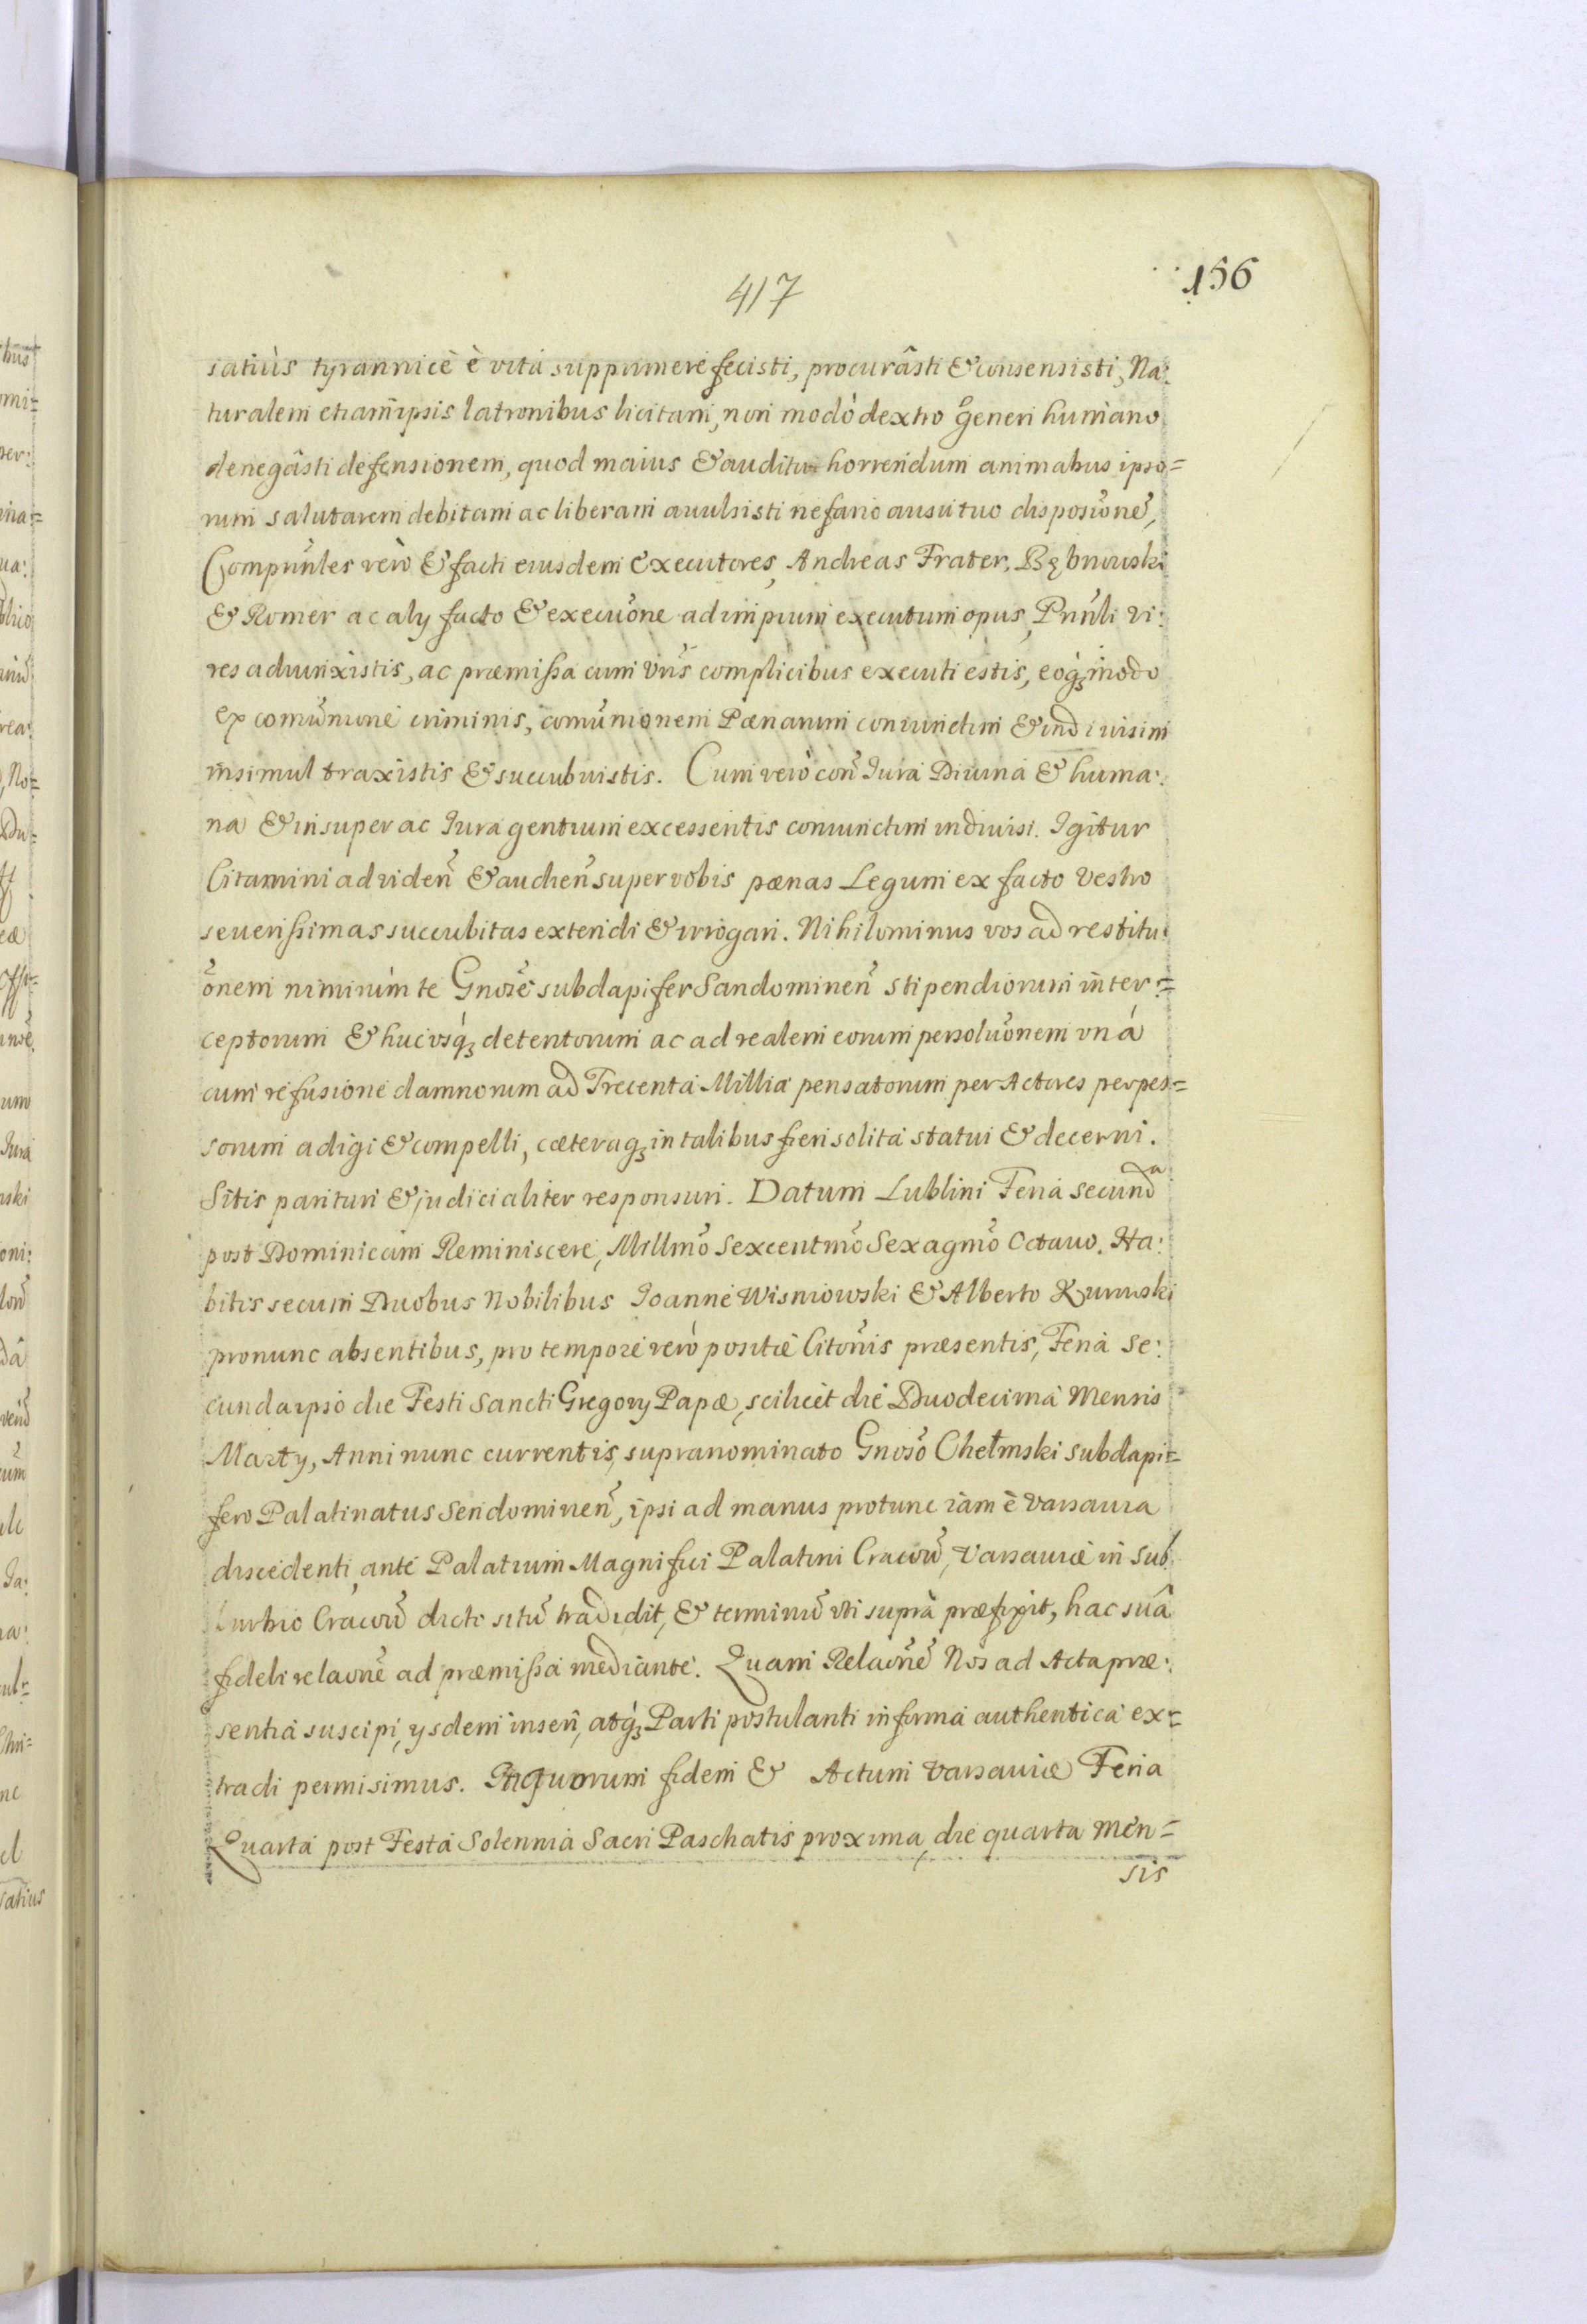 417
156
satiùs tyrannicè è vita supprimere fecisti, procurâsti & consensisti, Na:
turalem etiam ipsis latronibus licitam, non modò dextro generi humano
denegâsti defensionem, quod maius & auditu horrendum animabus ipso=
rum salutarem debitam ac liberam auulsisti nefario ausu tuo disposiōne,
Comprin̄les verò & facti eiusdem executores, Andreas Frater, Bębnowski
& Romer ac aly facto & execuōne ad impium executum opus, Prin̄li vi:
res adiunxistis, ac præmissa cum vris̄ complicibus executi estis, eoqʒ modo
ex comūnione criminis, comūnionem Pænarum coniunctim & indiuisim
insimul traxistis & succubuistis. Cum verò con̄ Iura Diuina & huma:
na & insuper ac Iura gentium excessentis coniunctim indiuisi. Igitur
Citamini ad viden̄ & audien̄ super vobis pænas Legum ex facto vestro
seuerissimas succubitas extendi & irrogari. Nihilominus vos ad restitu:
ōnem nimirùm te Gnosē subdapifer Sandominen̄ stipendiorum inter:=
ceptorum & huc vsqʒ detentorum ac ad realem eorum persoluōnem vná
cum refusione damnorum ad Trecenta Millia pensatorum per Actores perpes=
sorum adigi & compelli, cæteraqʒ in talibus fieri solita statui & decerni.
Sitis parituri & judicialiter responsuri. Datum Lublini Feria secunda
post Dominicam Reminiscere, Millmō Sexcentmō Sexagmō Octauo. Ha:
bitis secum Duobus Nobilibus Ioanne Wisniowski & Alberto Kurowski
pronunc absentibus, pro tempore verò positæ Citōnis præsentis, Feria Se:
cunda ipso die Festi Sancti Gregory Papæ, scilicet die Duodecima Mensis
Marty, Anni nunc currentis, supranominato Gnosō Chełmski subdapi=
fero Palatinatus Sendomirien̄, ipsi ad manus protunc iam è Varsauia
discedenti, ante Palatium Magnifici Palatini Cracoū, Varsauiæ in Sub
urbio Cracoū dicto sitū tradidit, & terminū vti suprà præfixit, hac suâ
fideli relaōne ad præmissa mediante. Quam Relaōnē Nos ad Acta præ:
sentia suscipi, ysdem inseri, atqʒ Parti postulanti in forma authentica ex:=
tradi permisimus. In quorum fidem & Actum Varsauiæ Feria
Quarta post Festa Solennia Sacri Paschatis proxima, die quarta Men=
sis